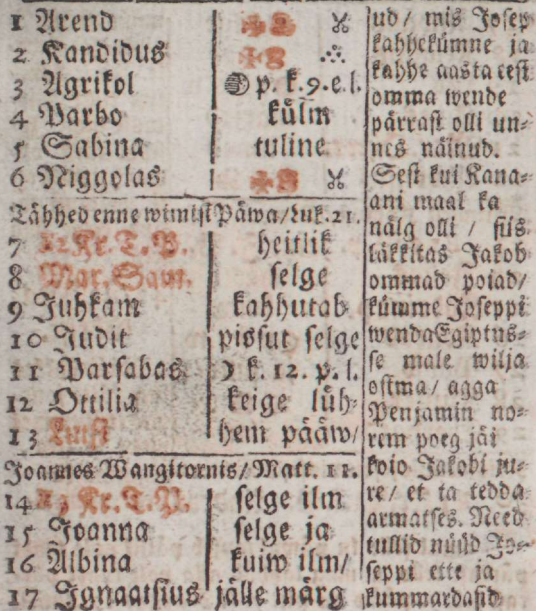 1 Arend
2 Kandidus
3 Agrikol p. k. 9. e. l.
4 Barbo külm
5 Sabina tuline
6 Niggolas
Tähhed enne wimist Päwa/Luk. 21.
7 Kr. T. P. heitlik
8 Mar. Saw. selge
9 Juhkam kahhutab
10 Judit pissut selge
11 Barsabas ☽ k. 12. p. l.
12 Ottilia keige lüh-
13 hem pääw/
Joannes Wangitornis/Matt. 11.
14 Kr. T. P. selge ilm
15 Joanna selge ja
16 Albina kuiw ilm/
17 Ignaatsius jälle märg
jud/ mis Josep
kahhekümne ja
kahhe aasta eest
omma wende
pärrast olli un-
nes näinud.
Sest kui Kana-
ani maal ka
nälg olli / siis
läkkitas Jakob
ommad poiad/
kümme Joseppi
wenda Egiptus-
se male wilja
ostma/ agga
Penjamin no-
rem poeg jäi
koio Jakobi ju-
re/ et ta tedda
armatses. Need
tullid nüüd Jo-
seppi ette ja
kummardasid